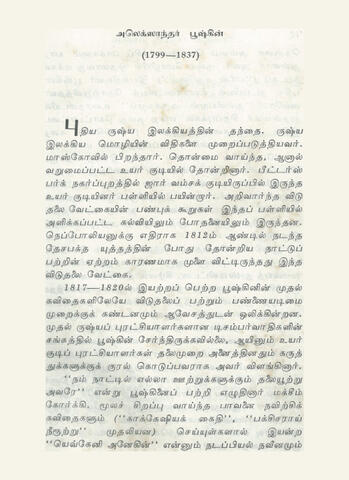 அலெக்ஸாந்தர் பூஷ்கின்
(1799—1837)
புதிய ருஷ்ய இலக்கியத்தின் தந்தை, ருஷ்ய
இலக்கிய மொழியின் விதிகளை முறைப்படுத்தியவர்.
மாஸ்கோவில் பிறந்தார். தொன்மை வாய்ந்த, ஆனால்
வறுமைப்பட்ட உயர் குடியில் தோன்றினார். பீட்டர்ஸ்
பர்க் நகர்ப்புறத்தில் ஜார் வம்சக் குடியிருப்பில் இருந்த
உயர் குடியினர் பள்ளியில் பயின்றார். அறிவார்ந்த விடு
தலை வேட்கையின் பண்புக் கூறுகள் இந்தப் பள்ளியில்
அளிக்கப்பட்ட கல்வியிலும் போதனையிலும் இருந்தன.
நெப்போலியனுக்கு எதிராக 1812ம் ஆண்டில் நடந்த
தேசபக்த யுத்தத்தின் போது தோன்றிய நாட்டுப்
பற்றின் ஏற்றம் காரணமாக முளை விட்டிருந்தது இந்த
விடுதலை வேட்கை.
1817—1820ல் இயற்றப் பெற்ற பூஷ்கினின் முதல்
கவிதைகளிலேயே விடுதலைப் பற்றும் பண்ணையடிமை
முறைக்குக் கண்டனமும் ஆவேசத்துடன் ஒலிக்கின்றன.
முதல் ருஷ்யப் புரட்சியாளர்களான டிசம்பர்வாதிகளின்
சங்கத்தில் பூஷ்கின் சேர்ந்திருக்கவில்லை, ஆயினும் உயர்
குடிப் புரட்சியாளர்கள் தலைமுறை அனைத்தினதும் கருத்
துக்களுக்குக் குரல் கொடுப்பவராக அவர் விளங்கினார்.
‘‘நம் நாட்டில் எல்லா ஊற்றுக்களுக்கும் தலையூற்று
அவரே’’ என்று பூஷ்கினைப் பற்றி எழுதினார் மக்சீம்
கோர்க்கி. மூலச் சிறப்பு வாய்ந்த பாவனை நவிற்சிக்
கவிதைகளும் (‘‘காக்கேஷியக் கைதி’’, ‘‘பக்சிசராய்
நீரூற்று’’ முதலியன) செய்யுள்களால் இயன்ற
‘‘யெவ்கேனி அனேகின்’’ என்னும் நடப்பியல் நவீனமும்